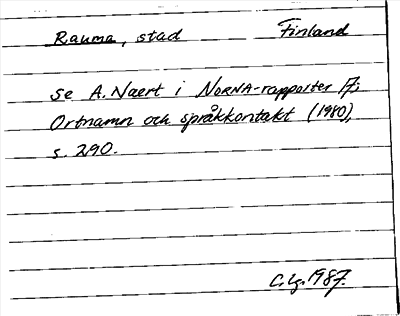 Rauma, stad Finland
se A. Naert i NORNA-rapporter 17;
Ortnamn och språkkontakt (1980),
s. 290.
C.Lg. 1987.